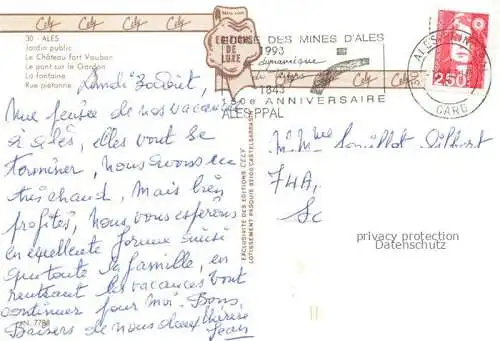 30 - ALES
Jardin public
Le Château fort Vauban
Le pont sur le Gardon
La fontaine
Rue piétonne
Cely
Cely
EDITIONS
DE
LUXE
Cely
Cely
DES MINES D'ALES
1993
dynamique
1843
150e ANNIVERSAIRE
ALES PPAL
ALES
GARD
2,50
Lundi 30 Août,
Une pensée de nos vacances
à Alès, elles vont se
terminer, nous avons eu
très chaud, mais bien
profités, nous vous espérons
en excellente forme ainsi
que toute la famille, en
rentrant les vacances vont
continuer pour moi. Bons
Baisers de nous deux Thérèse
Jean
N. 7788
EXCLUSIVITE DES EDITIONS CELY
LOTISSEMENT PASQUIS 82100 CASTELSARRASIN
M. Mme
74A,
privacy protection
Datenschutz